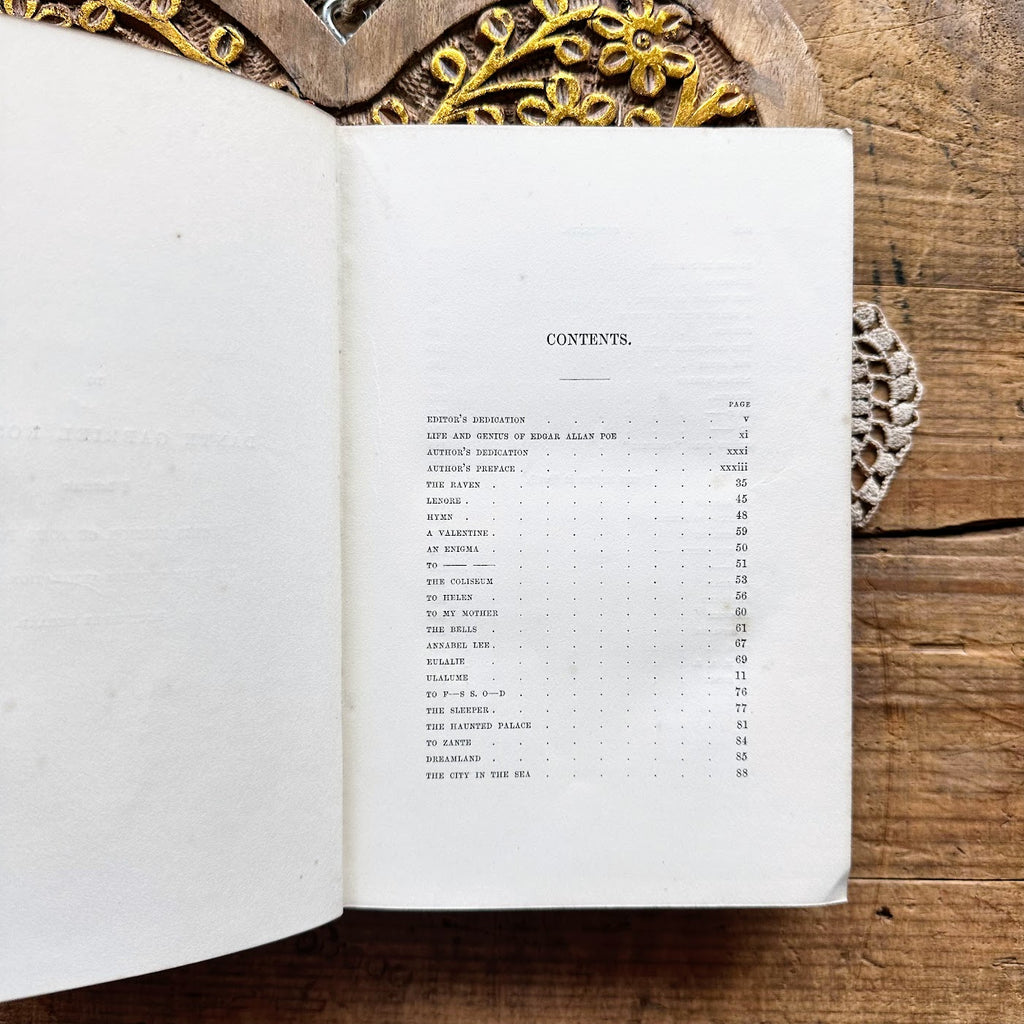 CONTENTS.
PAGE
EDITOR'S DEDICATION . . . . . . . v
LIFE AND GENIUS OF EDGAR ALLAN POE . . . . xi
AUTHOR'S DEDICATION . . . . . . . xxxi
AUTHOR'S PREFACE . . . . . . . . xxxiii
THE RAVEN . . . . . . . . . 35
LENORE . . . . . . . . . . 45
HYMN . . . . . . . . . . 48
A VALENTINE . . . . . . . . . 59
AN ENIGMA . . . . . . . . . 50
TO —— —— . . . . . . . . 51
THE COLISEUM . . . . . . . . 53
TO HELEN . . . . . . . . . 56
TO MY MOTHER . . . . . . . . 60
THE BELLS . . . . . . . . . 61
ANNABEL LEE . . . . . . . . . 67
EULALIE . . . . . . . . . 69
ULALUME . . . . . . . . . 11
TO F—S S. O—D . . . . . . . . 76
THE SLEEPER . . . . . . . . . 77
THE HAUNTED PALACE . . . . . . . 81
TO ZANTE . . . . . . . . . 84
DREAMLAND . . . . . . . . . 85
THE CITY IN THE SEA . . . . . . . 88